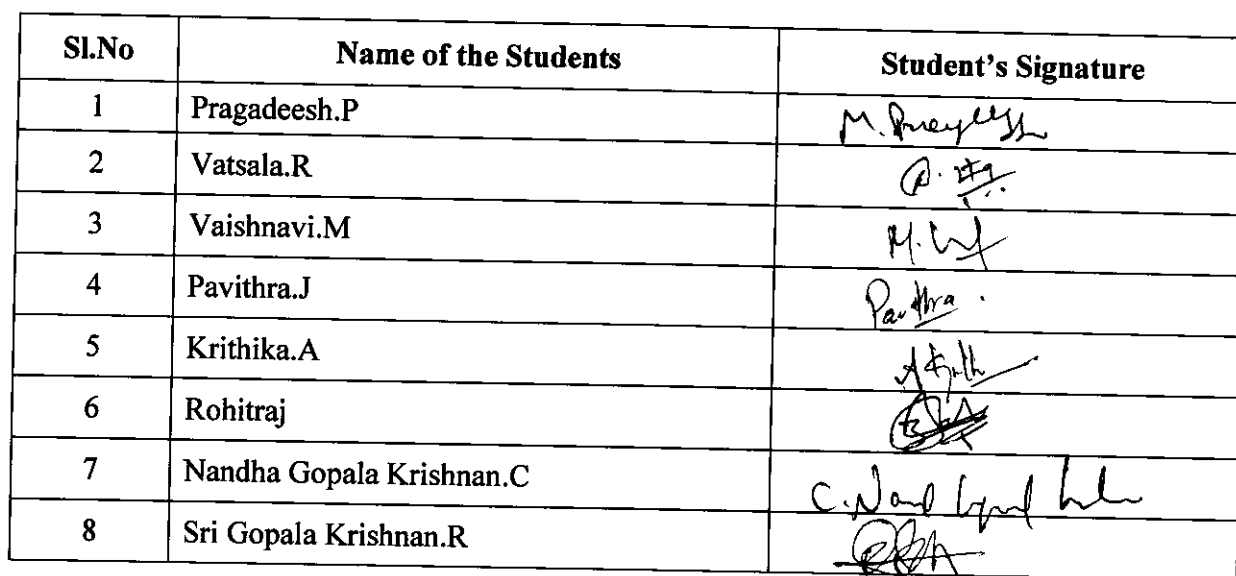 Sl.No Name of the Students Student's Signature
1 Pragadeesh.P M.
2 Vatsala.R
3 Vaishnavi.M M.
4 Pavithra.J Pavithra.
5 Krithika.A A
6 Rohitraj
7 Nandha Gopala Krishnan.C C.Nand
8 Sri Gopala Krishnan.R